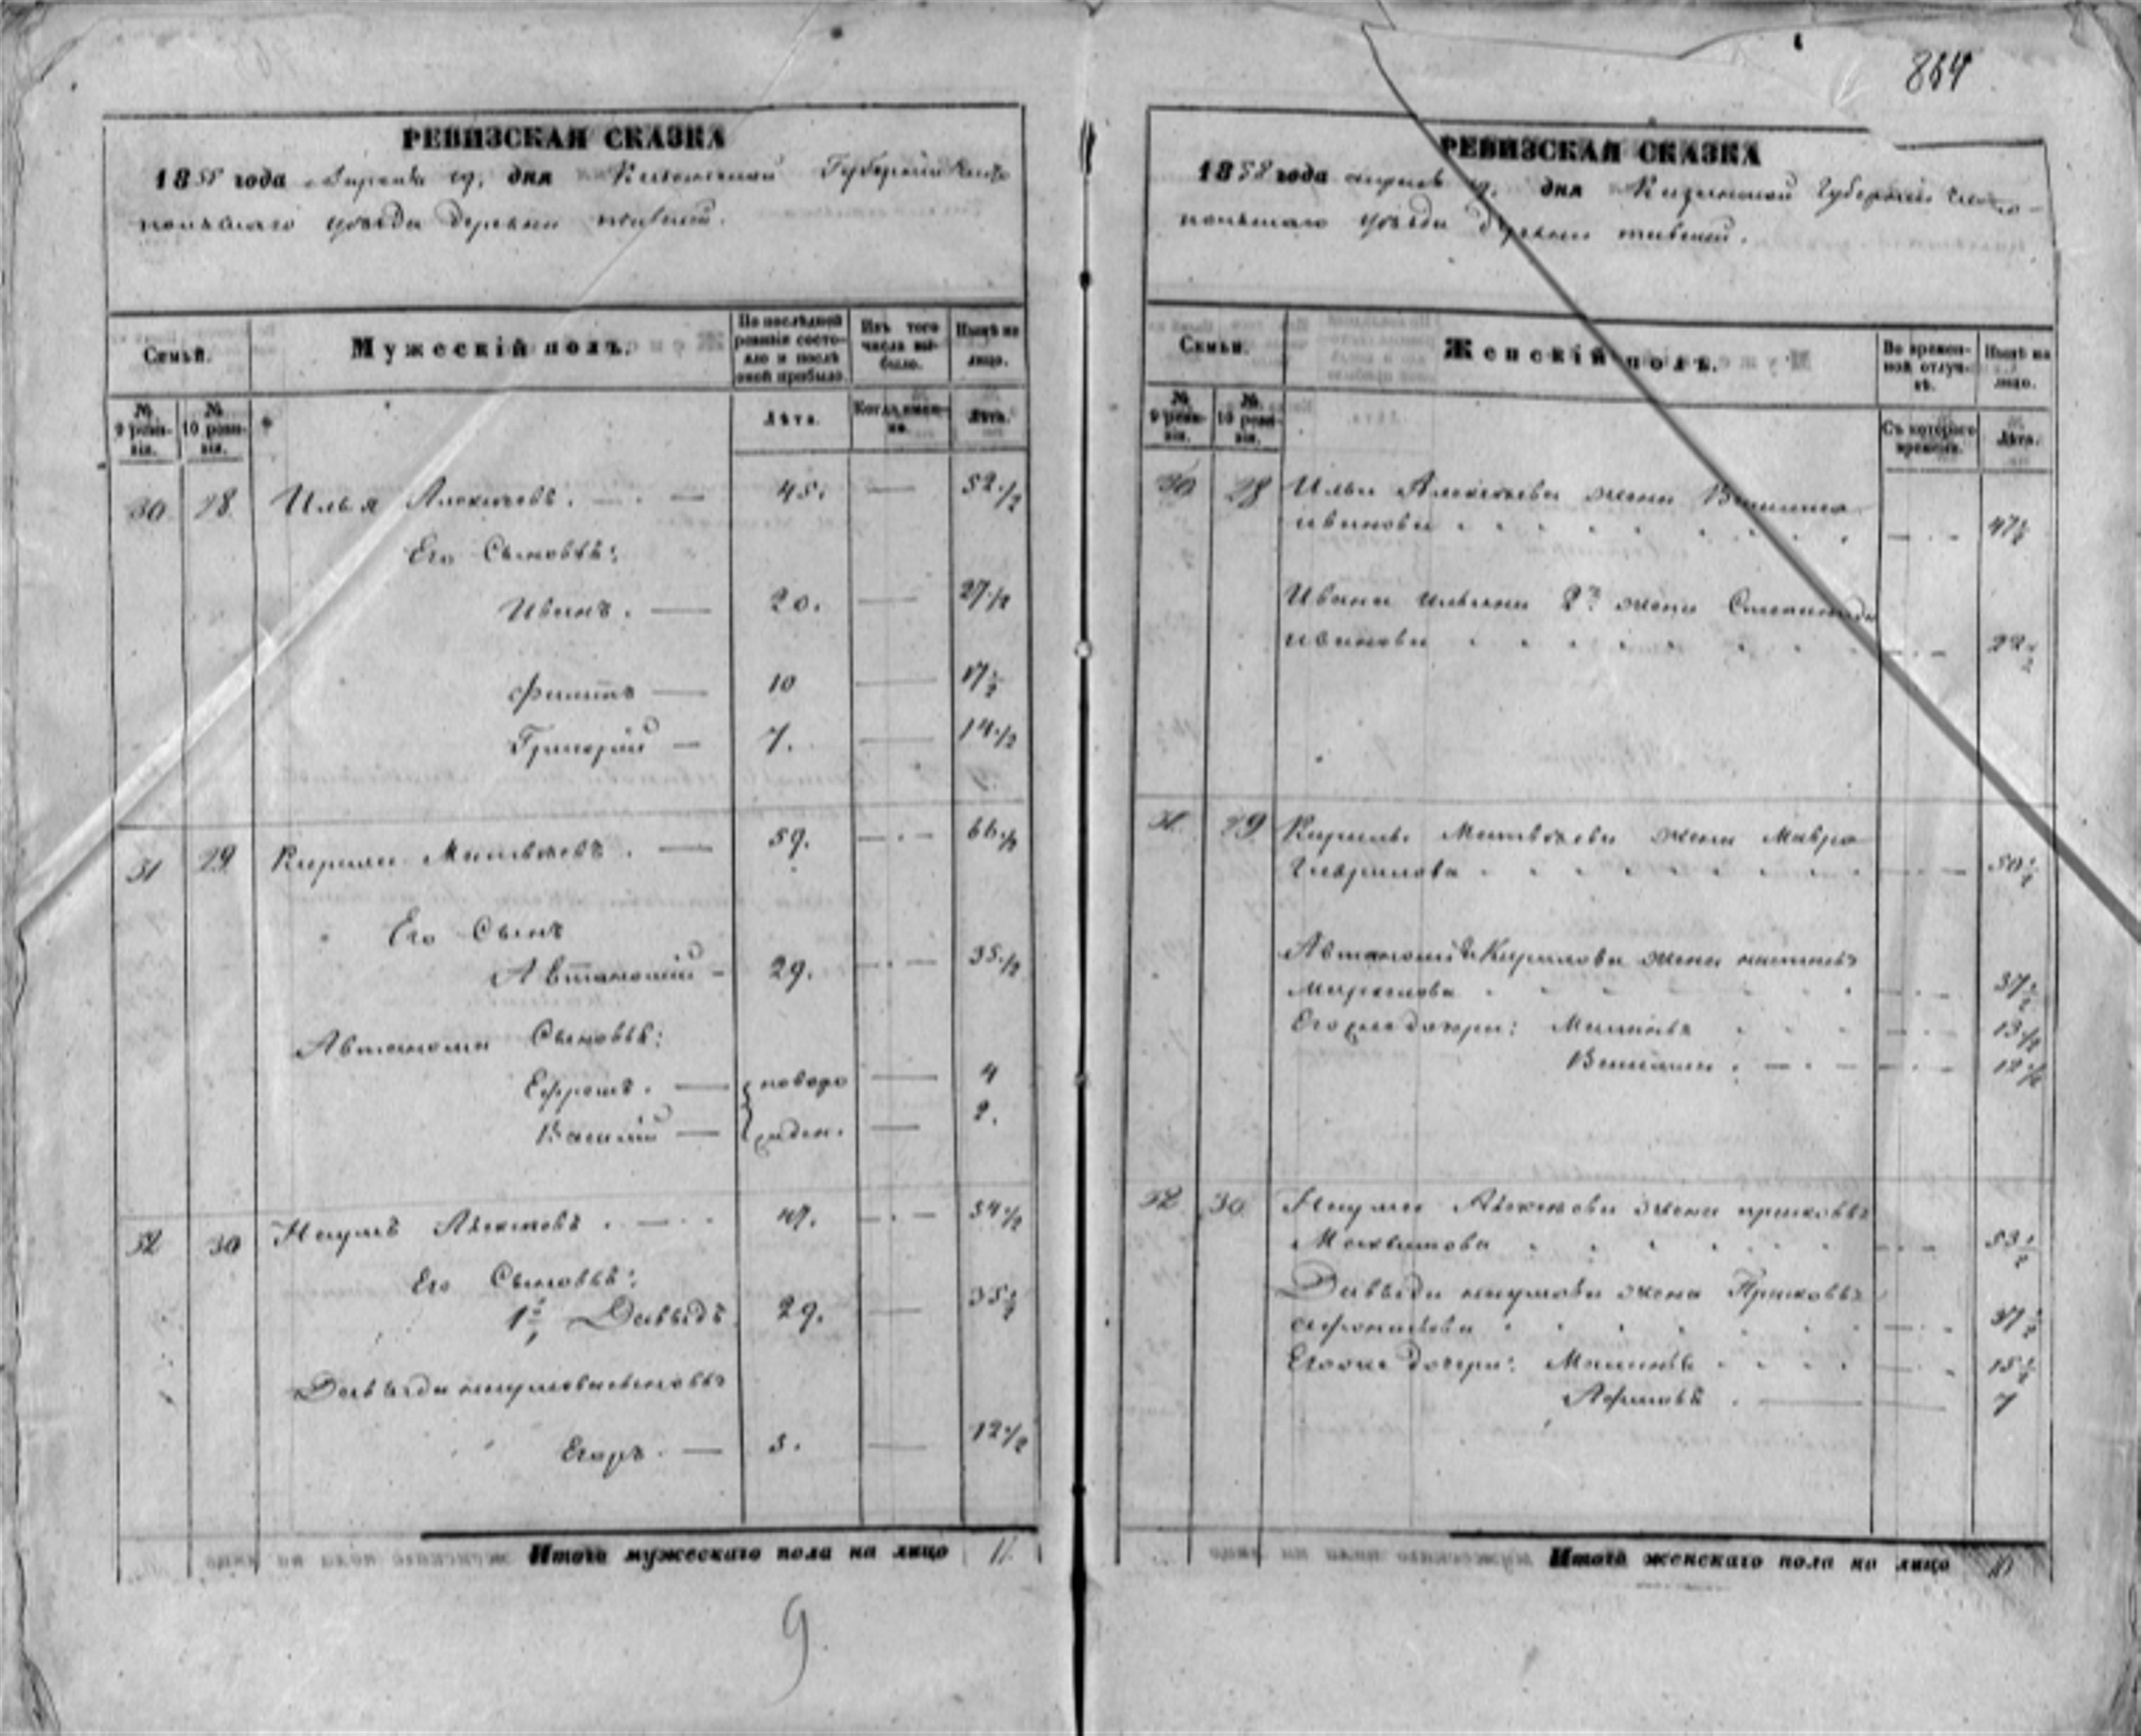 864
РЕВИЗСКАЯ СКАЗКА
1858 года Апреля 19. дня Казанской Губерніи Чисто
польскаго уезда деревни
Семьи.
Мужескій полъ.
По последней ревизіи состояло и после оной прибыло.
Изъ того числа выбыло.
Ныне на лицо.
№ 9 ревизіи.
№ 10 ревизіи.
Лѣта.
Когда именно.
Лѣта.
30 28 Илья Алексеевъ . — 45. — 52 1/2
Его Сыновья:
Иванъ . — 20. — 27 1/2
Филипъ — 10 — 17 1/2
Григорій — 7. — 14 1/2
31 29 Кирила Матвеевъ . — 59. — 66 1/2
Его Сынъ
Автономій - 29. — 35 1/2
Автонома Сыновья:
Ефремъ . — новоро — 4
Василій — жден. — 2.
32 30 Наумъ . — 47. — 54 1/2
Его Сыновья:
1й Давыдъ 29. — 35 1/2
Давыда Наумова сыновья
Егоръ . — 5. — 12 1/2
Итого мужескаго пола на лицо 11.
9
РЕВИЗСКАЯ СКАЗКА
1858 года апреля 19. дня Казанской Губерніи Чисто-
польскаго уезда деревни
Семьи.
Женскій полъ.
Во временной отлучкѣ.
Ныне на лицо.
№ 9 ревизіи.
№ 10 ревизіи.
Съ котораго времени.
Лѣта.
30 28 Ильи Алексеева жена
иванова 47 1/2
Ивана Ильина 2я жена Степанида
иванова 22 1/2
31 29 Кирилы Матвеева жена Мавра
Гаврилова 50 1/2
Автономія Кирилова жена настасья
Маркелова 37 1/2
Его же дочери: Маланья 13 1/2
12 1/2
32 30 Наума жена прасковья
53 1/2
Давыда наумова жена Прасковья
афонасьева 37 1/2
Его же дочери: Маланья 15 1/2
Афимья . — 7
Итого женскаго пола на лицо 10